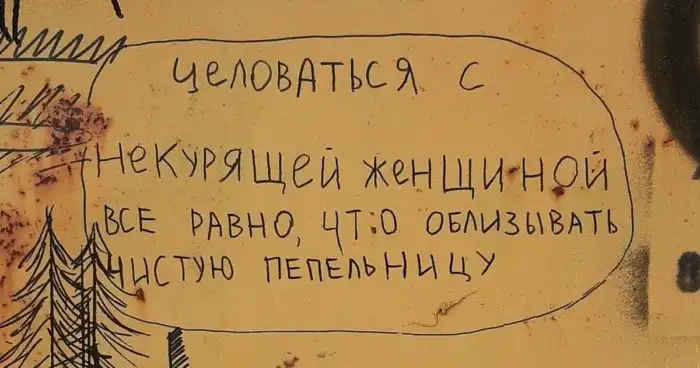 целоваться с
некурящей женщиной
все равно, что облизывать
чистую пепельницу
8